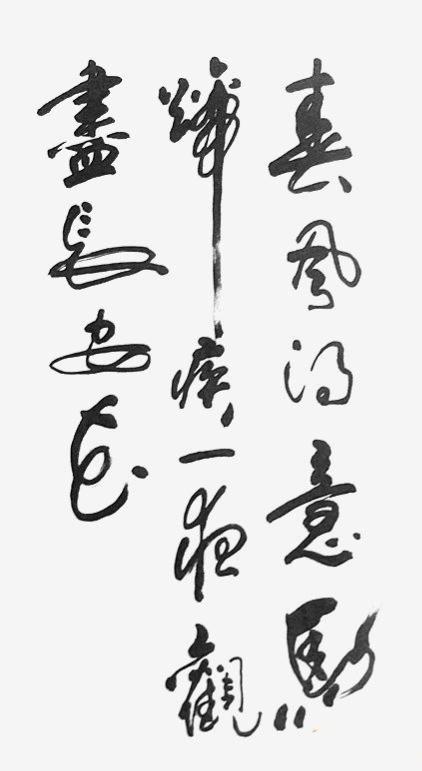 春風得意馬
蹄疾一夜觀
盡長安花